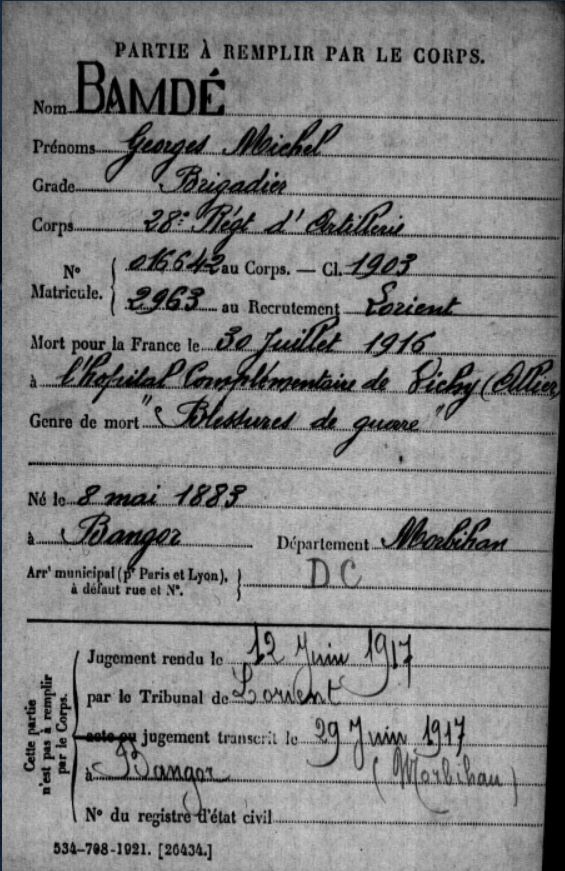 PARTIE À REMPLIR PAR LE CORPS.
Nom BAMDÉ
Prénoms Georges Michel
Grade Brigadier
Corps 28e Régt d'Artillerie
N° Matricule. { 016642 au Corps. — Cl. 1903
2963 au Recrutement Lorient
Mort pour la France le 30 Juillet 1916
à l'hopital Complémentaire de Vichy (Allier
Genre de mort "Blessures de guerre"
Né le 8 mai 1883
à Bangor Département Morbihan
Arrt municipal (pr Paris et Lyon), à défaut rue et N°. } DC
Cette partie n'est pas à remplir par le Corps.
Jugement rendu le 12 Juin 1917
par le Tribunal de Lorient
acte ou jugement transcrit le 29 Juin 1917
à Bangor (Morbihan)
N° du registre d'état civil
534-708-1921. [26434.]